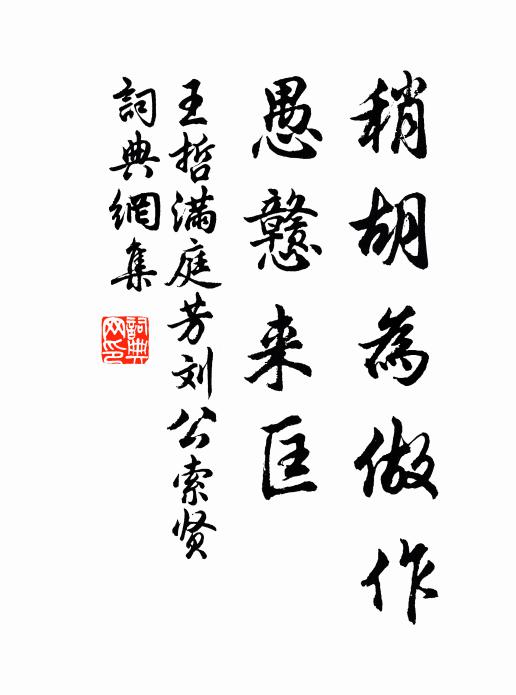 稍胡為做作
愚戆来匡
王哲满庭芳刘公索贤
詞典網集
詞典网印